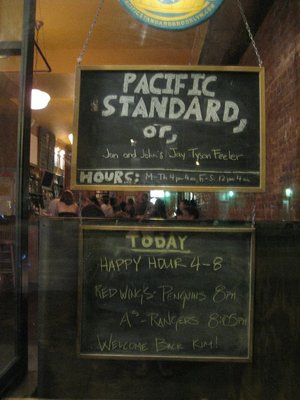 STANDARDBROOKLYN.C
PACIFIC
STANDARD,
or,
Jon and John's Jay Tyson Feeler
HOURS: M-Th 4pm-4am, F-S: 12pm-4am
TODAY
HAPPY HOUR 4-8
RED WINGS-PENGUINS 8PM
A's-RANGERS 8:05PM
WELCOME BACK KIM!